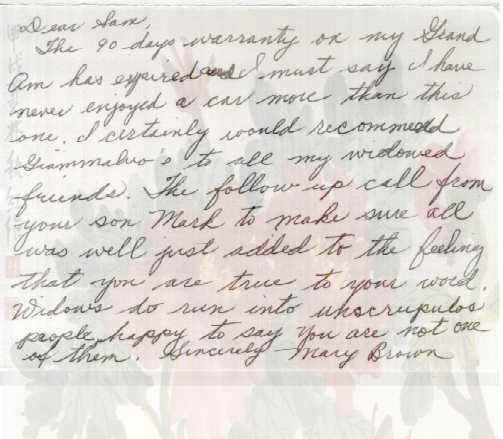 Dear Sam,
The 90-days warranty on my Grand
Am has expired and I must say I have
never enjoyed a car more than this
one. I certainly would recommend
Giammalvo's to all my widowed
friends. The follow up call from
your son Mark to make sure all
was well just added to the feeling
that you are true to your word.
Widows do run into unscrupulos
people, happy to say you are not one
of them. Sincerely Mary Brown